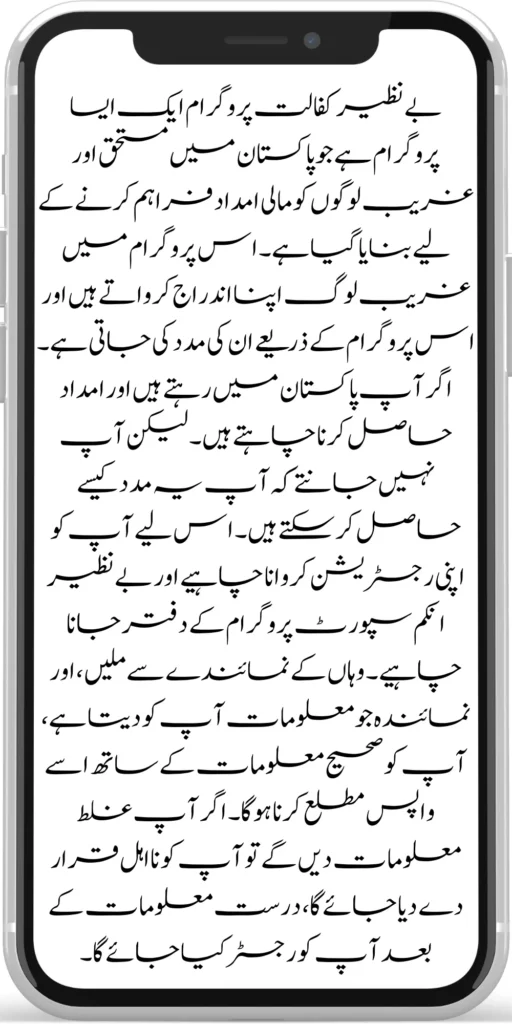 بے نظیر کفالت پروگرام ایک ایسا
پروگرام ہے جو پاکستان میں مستحق اور
غریب لوگوں کو مالی امداد فراہم کرنے کے
لیے بنایا گیا ہے۔ اس پروگرام میں
غریب لوگ اپنا اندراج کرواتے ہیں اور
اس پروگرام کے ذریعے ان کی مدد کی جاتی ہے۔
اگر آپ پاکستان میں رہتے ہیں اور امداد
حاصل کرنا چاہتے ہیں۔ لیکن آپ
نہیں جانتے کہ آپ یہ مدد کیسے
حاصل کر سکتے ہیں۔ اس لیے آپ کو
اپنی رجسٹریشن کروانا چاہیے اور بے نظیر
انکم سپورٹ پروگرام کے دفتر جانا
چاہیے۔ وہاں کے نمائندے سے ملیں، اور
نمائندہ جو معلومات آپ کو دیتا ہے،
آپ کو صحیح معلومات کے ساتھ اسے
واپس مطلع کرنا ہوگا۔ اگر آپ غلط
معلومات دیں گے تو آپ کو نااہل قرار
دے دیا جائے گا، درست معلومات کے
بعد آپ کو رجسٹر کیا جائے گا۔